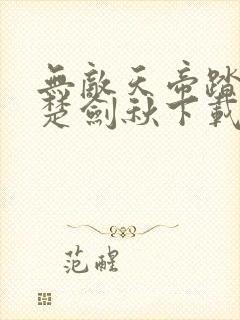 無敵天帝踏
楚劍秋下載
范醒